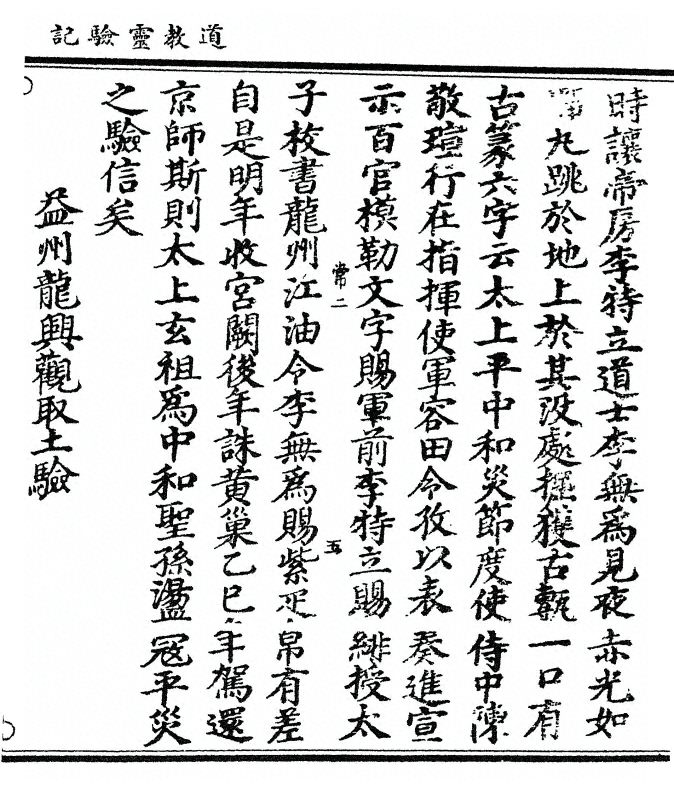 道教靈驗記
時讓帝房李特立道士李無為見夜赤光如
彈丸跳於地上於其沒處掘獲古甎一口有
古篆六字云太上平中和災節度使侍中陳
敬瑄行在指揮使軍容田令孜以表奏進宣
示百官模勒文字賜軍前李特立賜緋授太
常二
五
子校書龍州江油令李無為賜紫疋帛有差
自是明年收宮闕後年誅黃巢乙巳年駕還
京師斯則太上玄祖為中和聖孫盪寇平災
之驗信矣
益州龍興觀取土驗